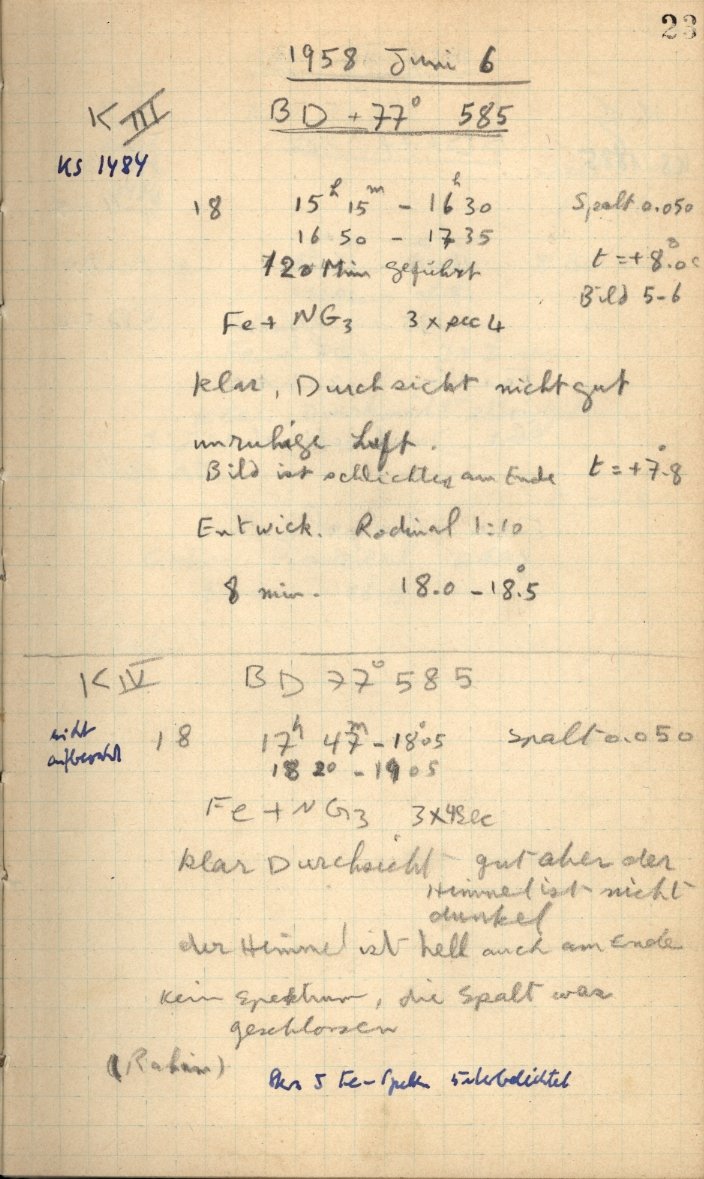 23
1958 Juni 6
K III
BD + 77° 585
KS 1484
18 15h 15m - 16h 30 Spalt 0.050
16 50 - 17 35
120 Min geführt t = + 8.°0
Bild 5-6
Fe + NG3 3 x sec 4
klar, Durchsicht nicht gut
unruhige Luft.
Bild ist schlichter am Ende t = + 7.°8
Entwick. Rodinal 1:10
8 min. 18.0 - 18.°5
K IV BD 77° 585
nicht
aufbewahrt
18 17h 47m - 18 05 Spalt 0.050
18 20 - 19 05
Fe + NG3 3x4sec
klar Durchsicht gut aber der
Himmel ist nicht
dunkel
der Himmel ist hell auch am Ende
kein Spektrum, die Spalt war
geschlossen
(Rahim)
5 Fe-